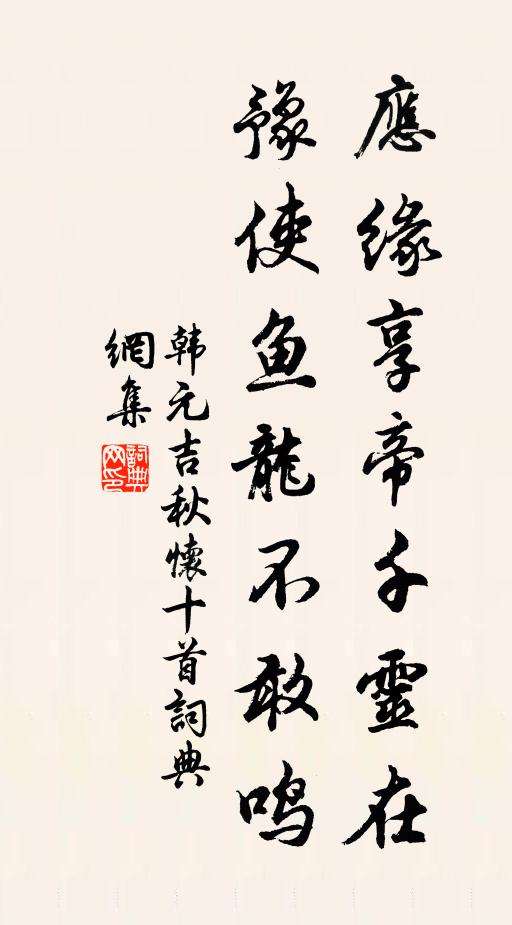 應缘享帝千靈在
豫使鱼龍不敢鸣
韩元吉秋懷十首詞典
網集
詞典
网印